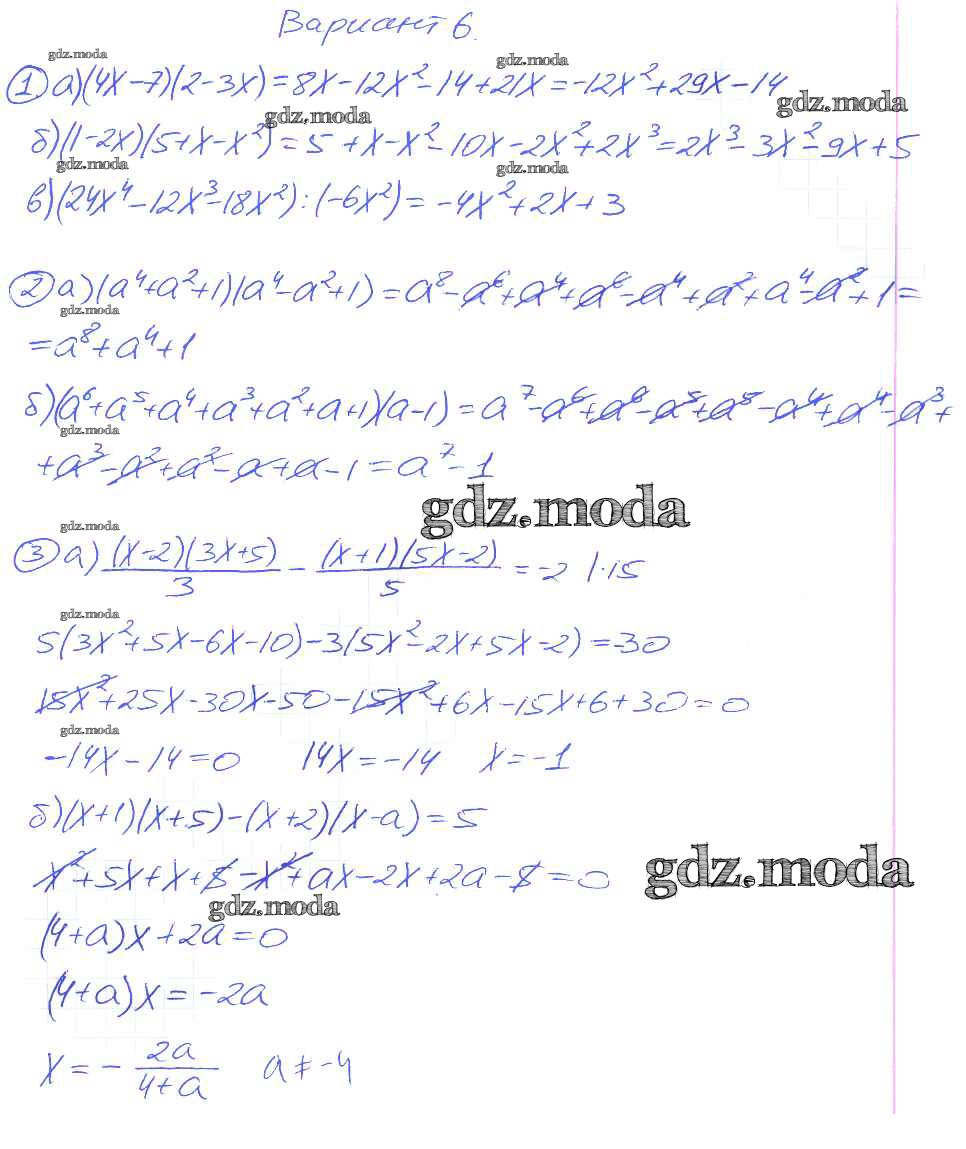 Вариант 6.
gdz.moda gdz.moda
① а) (4x-7)(2-3x) = 8x-12x²-14+21x = -12x²+29x-14
gdz.moda gdz.moda
б) (1-2x)(5+x-x²) = 5+x-x²-10x-2x²+2x³ = 2x³-3x²-9x+5
gdz.moda gdz.moda
в) (24x⁴-12x³-18x²):(-6x²) = -4x²+2x+3
② а) (a⁴+a²+1)(a⁴-a²+1) = a⁸-a⁶+a⁴+a⁶-a⁴+a²+a⁴-a²+1 =
gdz.moda
= a⁸+a⁴+1
б) (a⁶+a⁵+a⁴+a³+a²+a+1)(a-1) = a⁷-a⁶+a⁶-a⁵+a⁵-a⁴+a⁴-a³+
gdz.moda
+a³-a²+a²-a+a-1 = a⁷-1
gdz.moda
gdz.moda
③ а) (x-2)(3x+5)/3 - (x+1)(5x-2)/5 = -2 |·15
gdz.moda
5(3x²+5x-6x-10)-3(5x²-2x+5x-2) = -30
15x²+25x-30x-50-15x²+6x-15x+6+30=0
gdz.moda
-14x-14=0 14x=-14 x=-1
б) (x+1)(x+5)-(x+2)(x-a)=5
gdz.moda
x²+5x+x+5-x²+ax-2x+2a-5=0
gdz.moda
(4+a)x+2a=0
(4+a)x=-2a
x = - 2a/4+a a≠-4